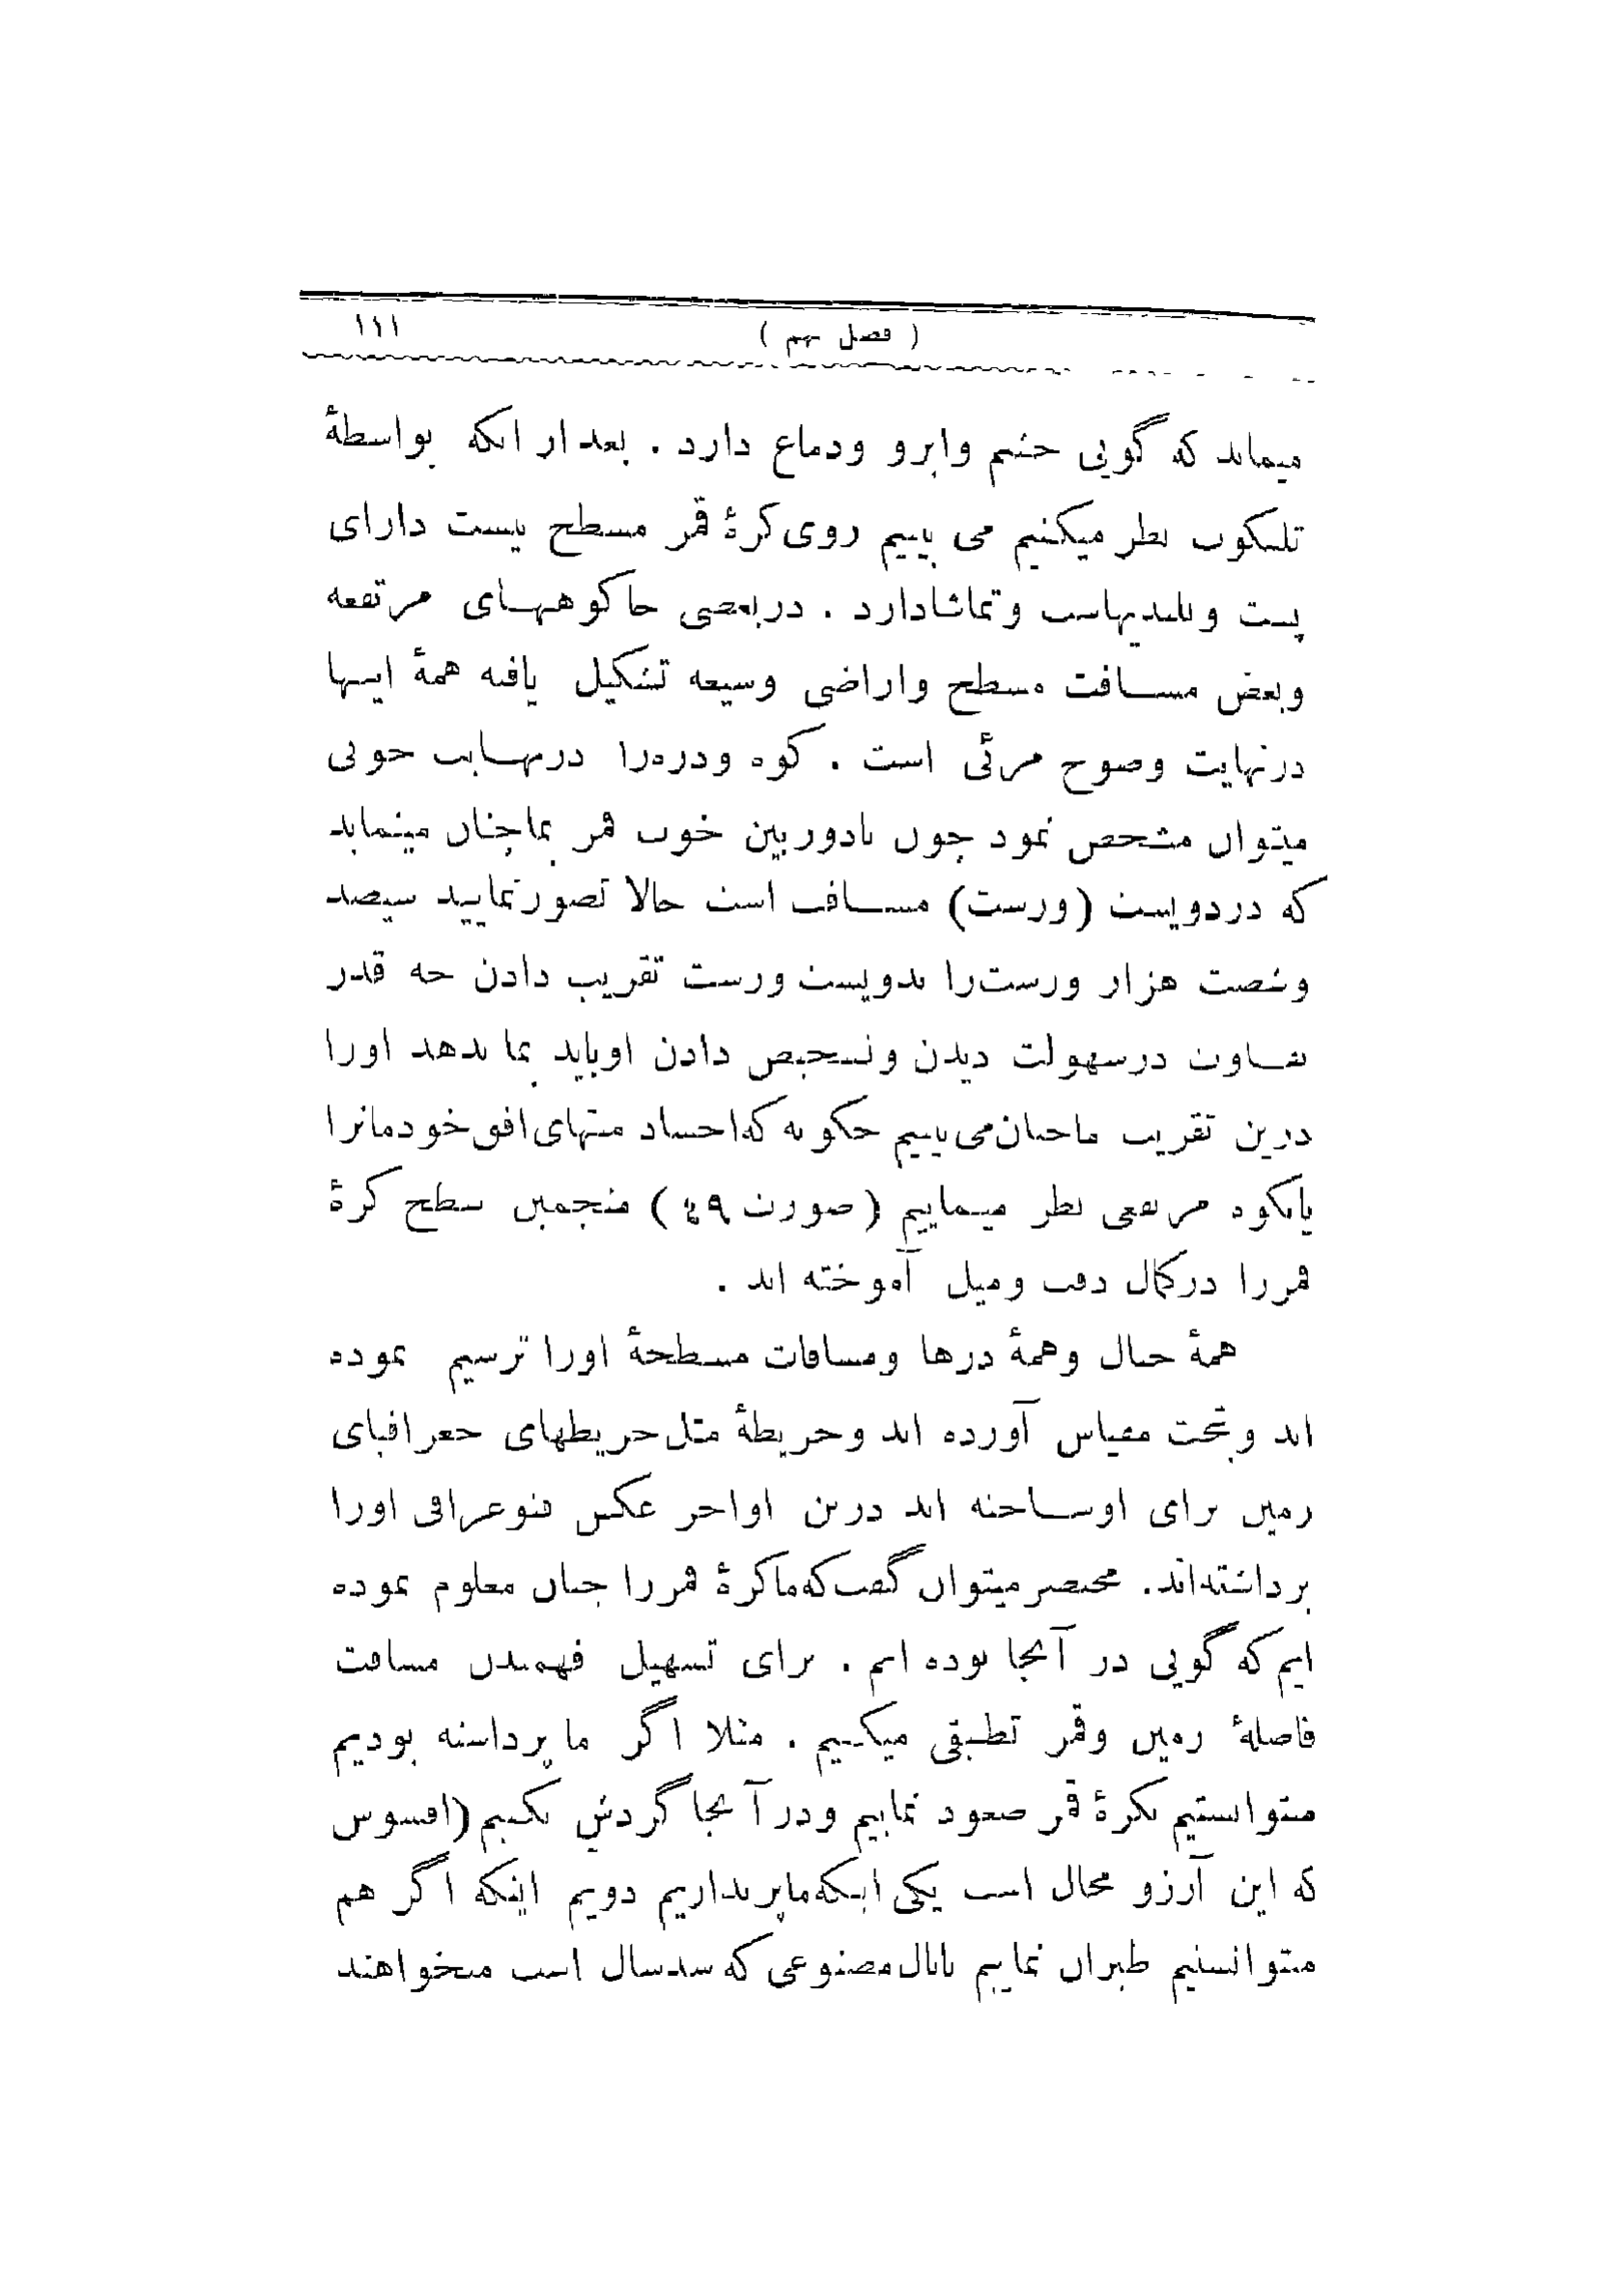 ( فصل نهم ) ۱۱۱
میماند که گویی چشم وابرو ودماغ دارد . بعد از انکه بواسطهٔ
تلسکوب نظر میکنیم می بینیم روی کرهٔ قمر مسطح نیست دارای
پست وبلندیهاست وتماشادارد . دربعضی جا کوههــای مرتفعه
وبعض مســافت مسطح واراضی وسیعه تشکیل یافته همهٔ اینها
درنهایت وضوح مرئی است . کوه ودره‌را درنهــایت خوبی
میتوان مشخص نمود چون بادوربین خوب قمر بماچنان مینماید
که دردویست (ورست) مســافت است حالا تصور نمایید سیصد
وشصت هزار ورست‌را بدویست ورست تقریب دادن چه قدر
تفــاوت درسهولت دیدن وتشخیص دادن اوباید بما بدهد اورا
درین تقریب ماچنان می‌بینیم چگونه که‌اجساد منتهای افق خودمانرا
یابکوه مرتفعی نظر مینماییم (صورت ٤٩) منجمین سطح کرهٔ
قمررا درکمال دقت ومیل آموخته اند .
همهٔ جبال وهمهٔ درها ومسافات مسطحهٔ اورا ترسیم نموده
اند وبتحت مقیاس آورده اند وخریطهٔ مثل خریطهای جغرافیای
زمین برای اوســاخته اند درین اواخر عکس فتوغرافی اورا
برداشته‌اند. مختصر میتوان گفت که ماکرهٔ قمررا چنان معلوم نموده
ایم که گویی در آنجا بوده ایم . برای تسهیل فهمیدن مسافت
فاصلهٔ زمین وقمر تطبیقی میکنیم . مثلا اگر ما پرداشته بودیم
میتوانستیم بکرهٔ قمر صعود نماییم ودر آنجا گردش بکنیم (افسوس
که این آرزو محال است یکی اینکه ماپرنداریم دویم اینکه اگر هم
میتوانستیم طیران نماییم بابال مصنوعی که سدسال است میخواهند